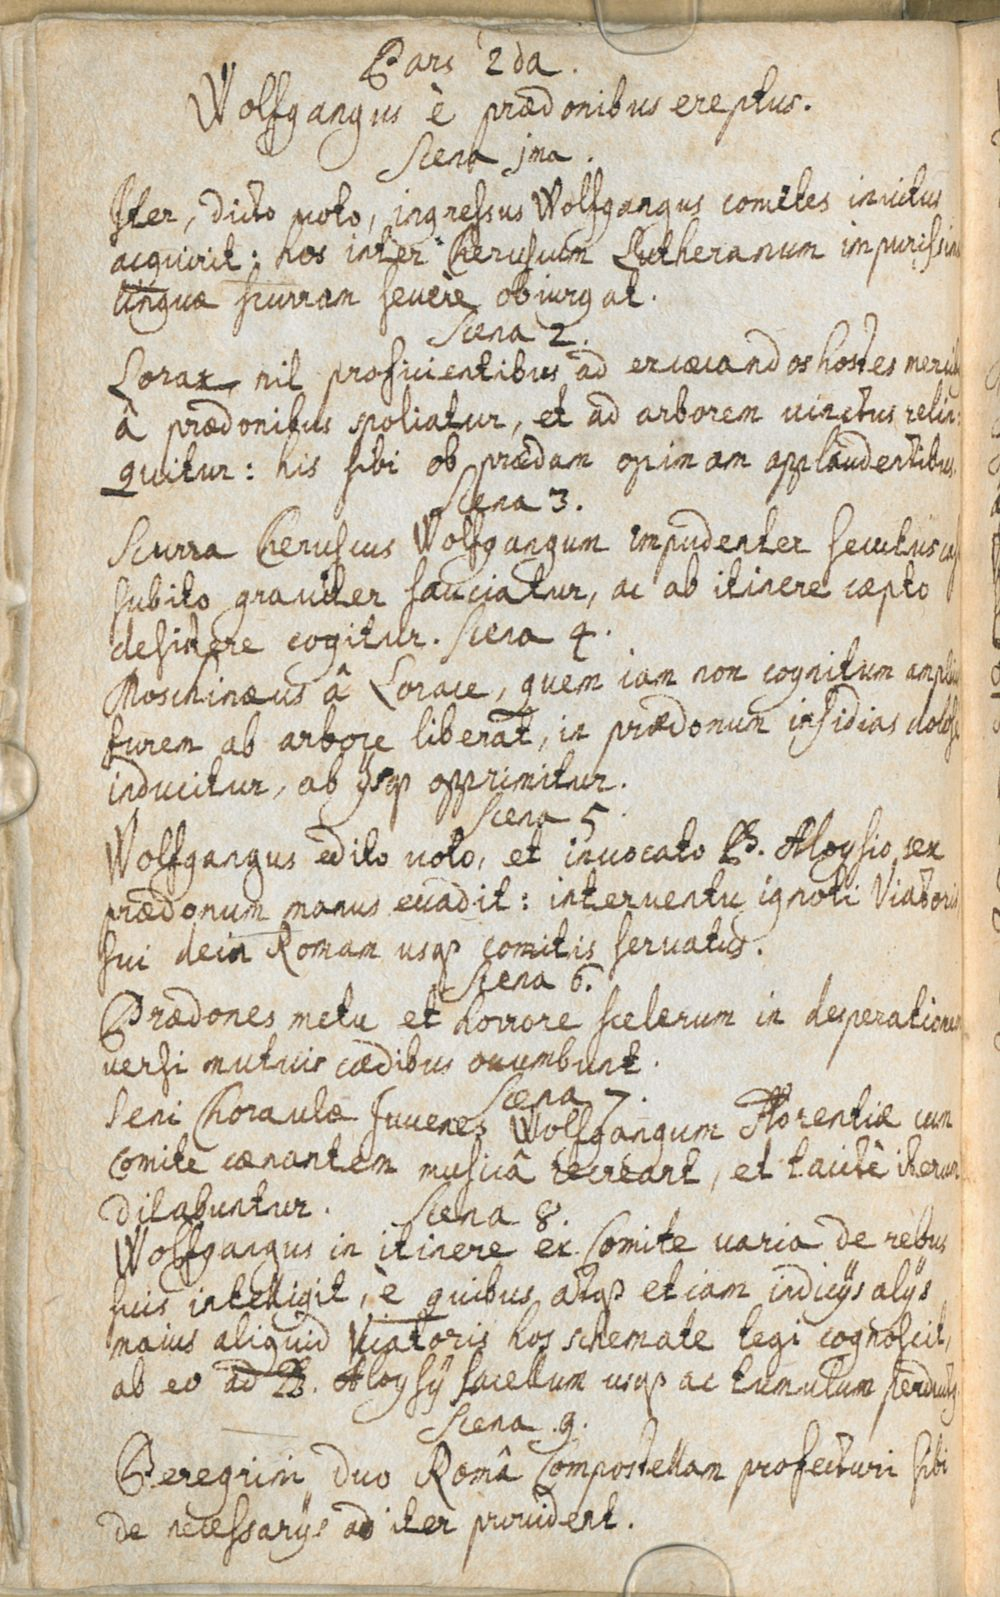 Pars 2da.
Wolfgangus è prædonibus ereptus.
Scena jma.
Iter, dicto uoto, ingressus Wolfgangus comites inuitus
acquirit: hos inter Cheruscum Lutheranum impurissimæ
linguæ scurram seuère obiurgat.
Scena 2.
Lorax, nil proficientibus ad excæcandos hostes
â prædonibus spoliatur, et ad arborem uinctus relin:
quitur: his sibi ob prædam opimam applaudentibus.
Scena 3.
Scurra Cheruscus Wolfgangum impudenter secutus
subito grauiter sauciatur, ac ab itinere cæpto
desistere cogitur. Scena 4.
Moschinæus â Lorace, quem iam non cognitum
furem ab arbore liberat, in prædonum insidias dolose
inducitur, ab ijsqꝫ opprimitur.
Scena 5.
Wolfgangus edito uoto, et inuocato B. Aloysio, sex
prædonum manus euadit: interuentu ignoti Viatoris
sui dein Romam usqꝫ comitis seruatus.
Scena 6.
Prædones metu et horrore scelerum in desperationem
uersi mutuis cædibus occumbunt.
Scena 7.
Seni Choraulæ Iuuenes Wolfgangum Florentiæ cum
Comite cænantem musicâ recreant, et tacitè iterum
dilabuntur. Scena 8.
Wolfgangus in itinere ex Comite uaria de rebus
suis intelligit, è quibus atqꝫ etiam indicijs alijs
maius aliquid Viatoris hos schemate tegi cognoscit,
ab eo ad B. Aloysij sacellum usqꝫ ac tumulum perductus
Scena 9.
Peregrini duo Româ Compostellam profecturi sibi
de necessarijs ad iter prouident.